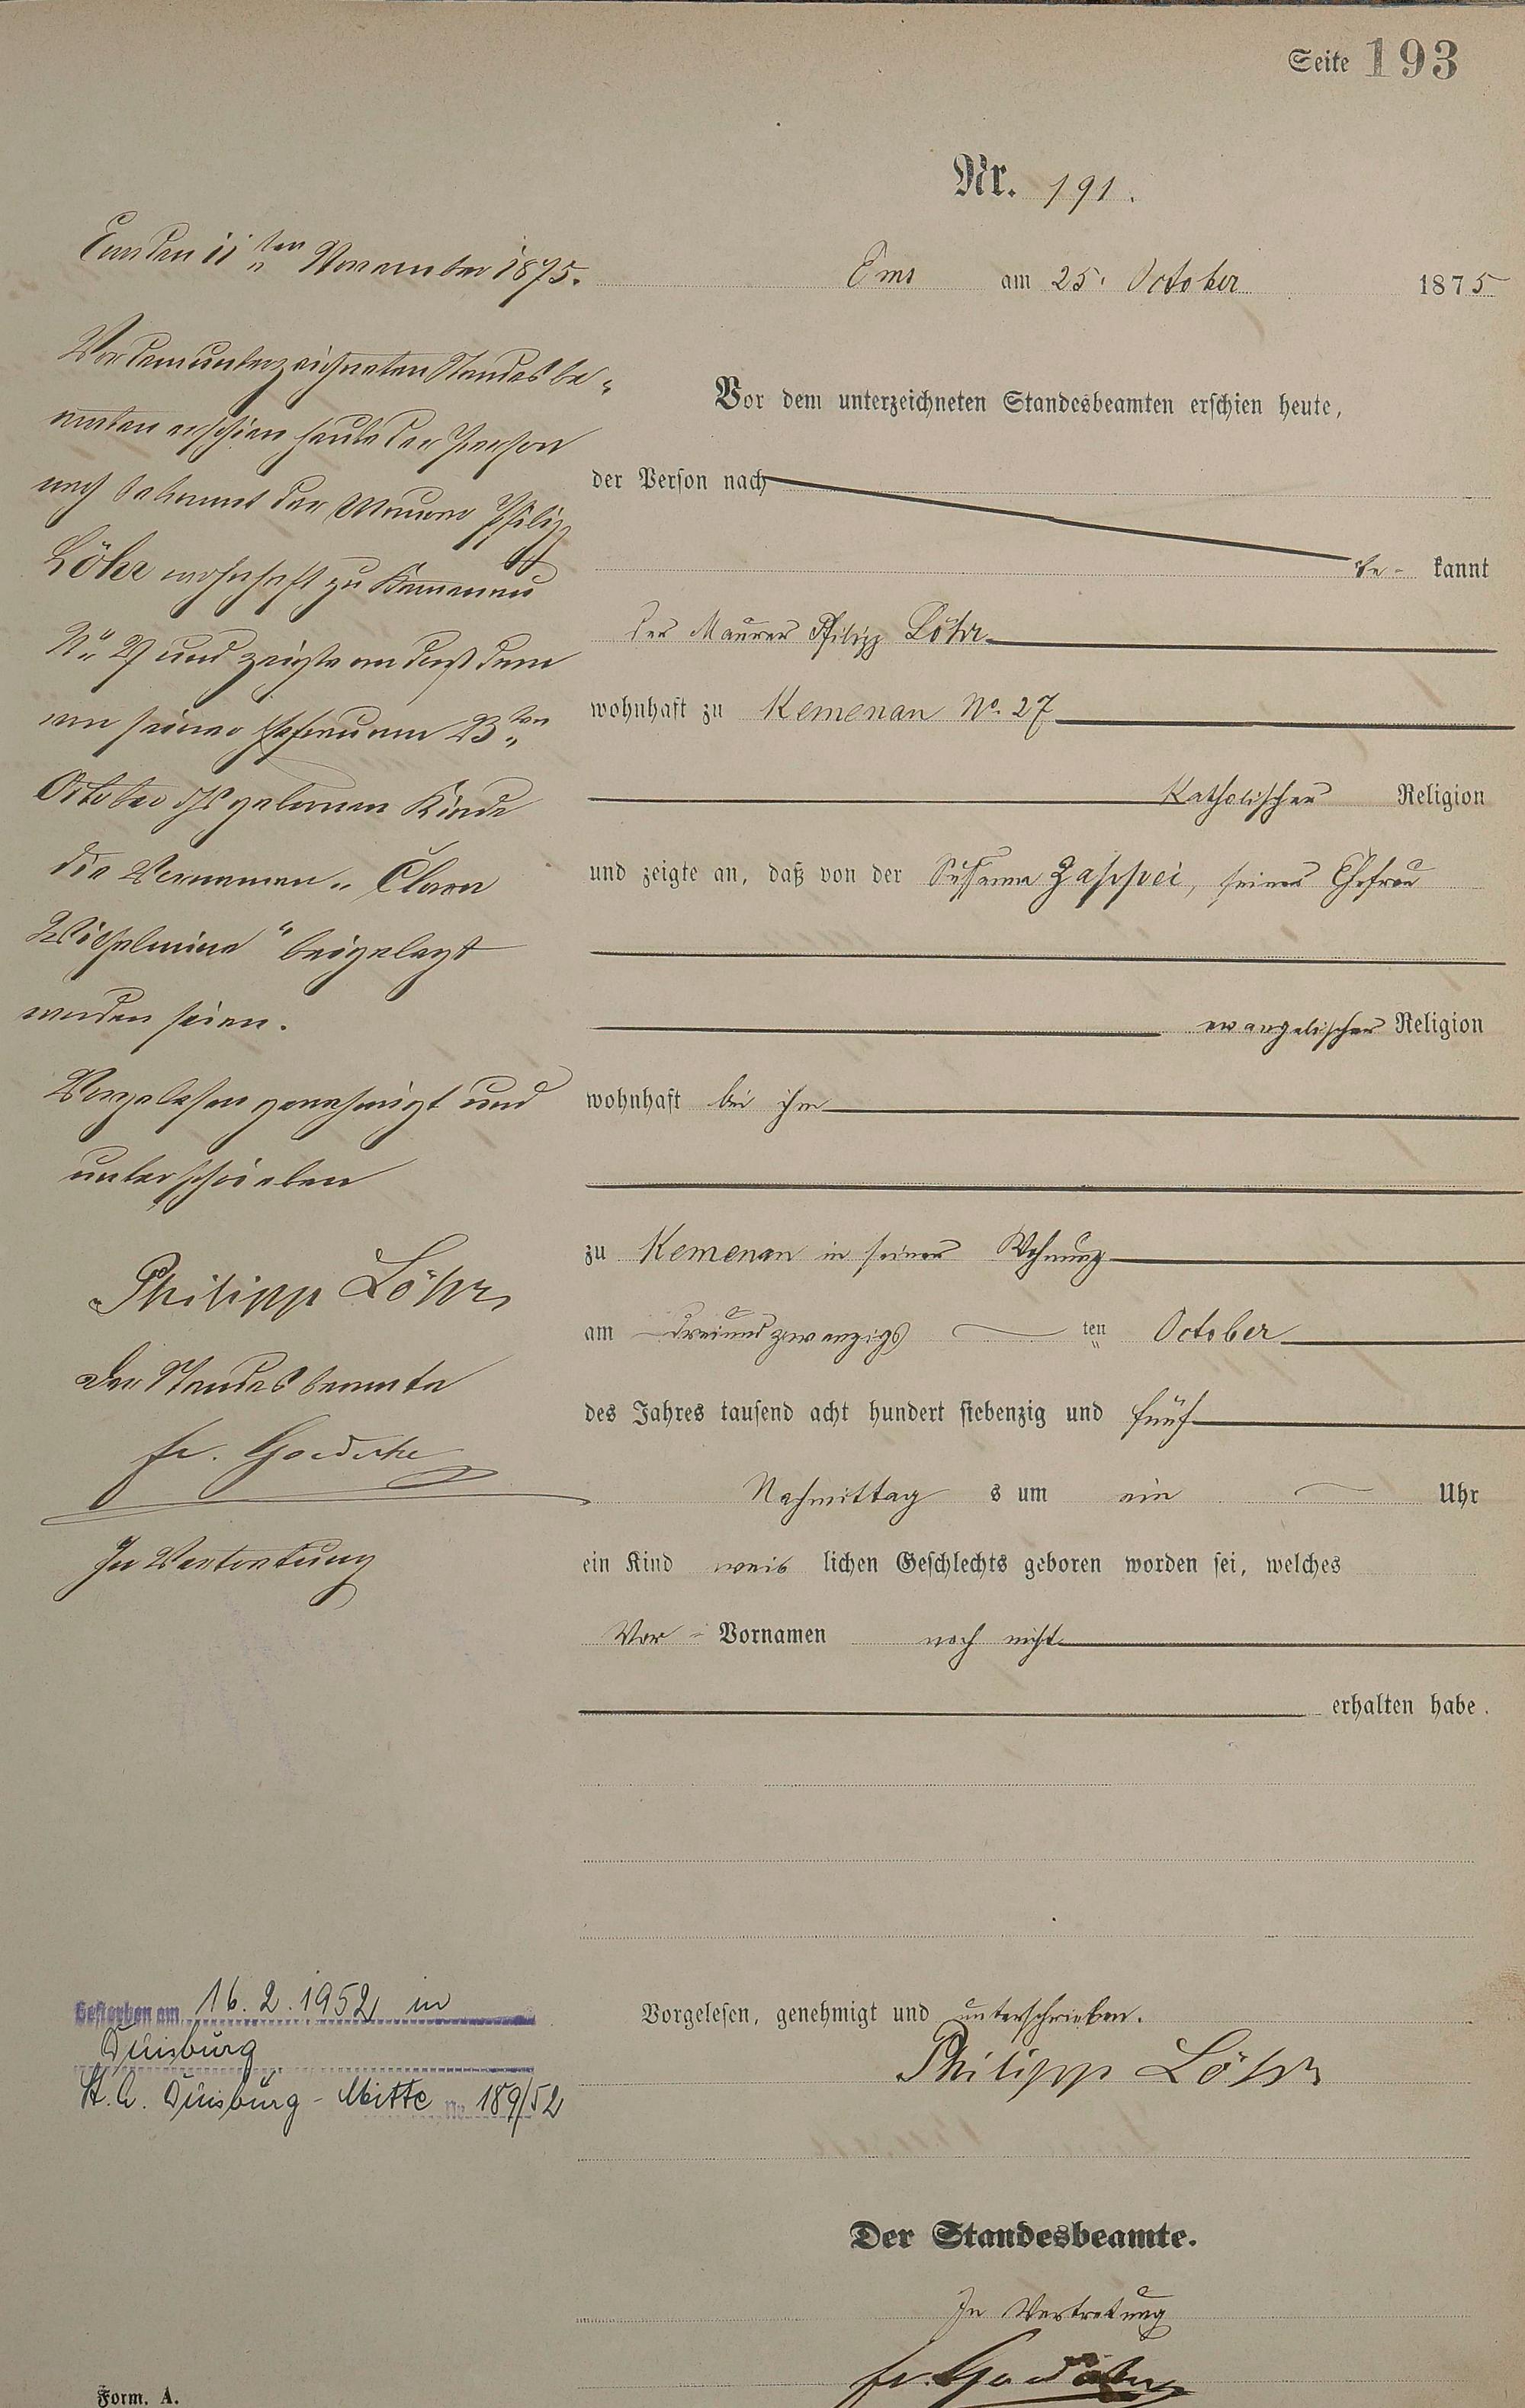 Seite 193
Nr. 191.
Ems am 25. October 1875
Vor dem unterzeichneten Standesbeamten erschien heute,
der Person nach
be- kannt
der Maurer Philipp Löhr
wohnhaft zu Kemenau No. 27
katholischer Religion
und zeigte an, daß von der Susanna Zappei, seiner Ehefrau
evangelischer Religion
wohnhaft bei ihm
zu Kemenau in seiner Wohnung
am dreiundzwanzigsten October
des Jahres tausend acht hundert siebenzig und fünf
Nachmittag s um ein Uhr
ein Kind weib lichen Geschlechts geboren worden sei, welches
Vor- Vornamen noch nicht
erhalten habe.
Vorgelesen, genehmigt und unterschrieben.
Philipp Löhr
Der Standesbeamte.
In Vertretung
fr.
Ems den 11ten November 1875.
Vor dem unterzeichneten Standesbe-
amten erschien heute der Person
nach bekannt der Maurer Philipp
Löhr wohnhaft zu Kemmenau
No 27 und zeigte an daß dem
von seiner Ehefrau am 23ten
October geborenen Kinde
die Vornamen „Clara
Wilhelmine“ beigelegt
worden seien.
Vorgelesen genehmigt und
unterschrieben
Philipp Löhr
Der Standesbeamte
fr.
In Vertretung
Gestorben am 16.2.1952 in
Duisburg
St.A. Duisburg-Mitte No 189/52
Form. A.